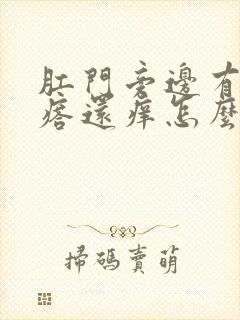 肛門旁邊有
痞還痒怎麼
掃碼賣萌